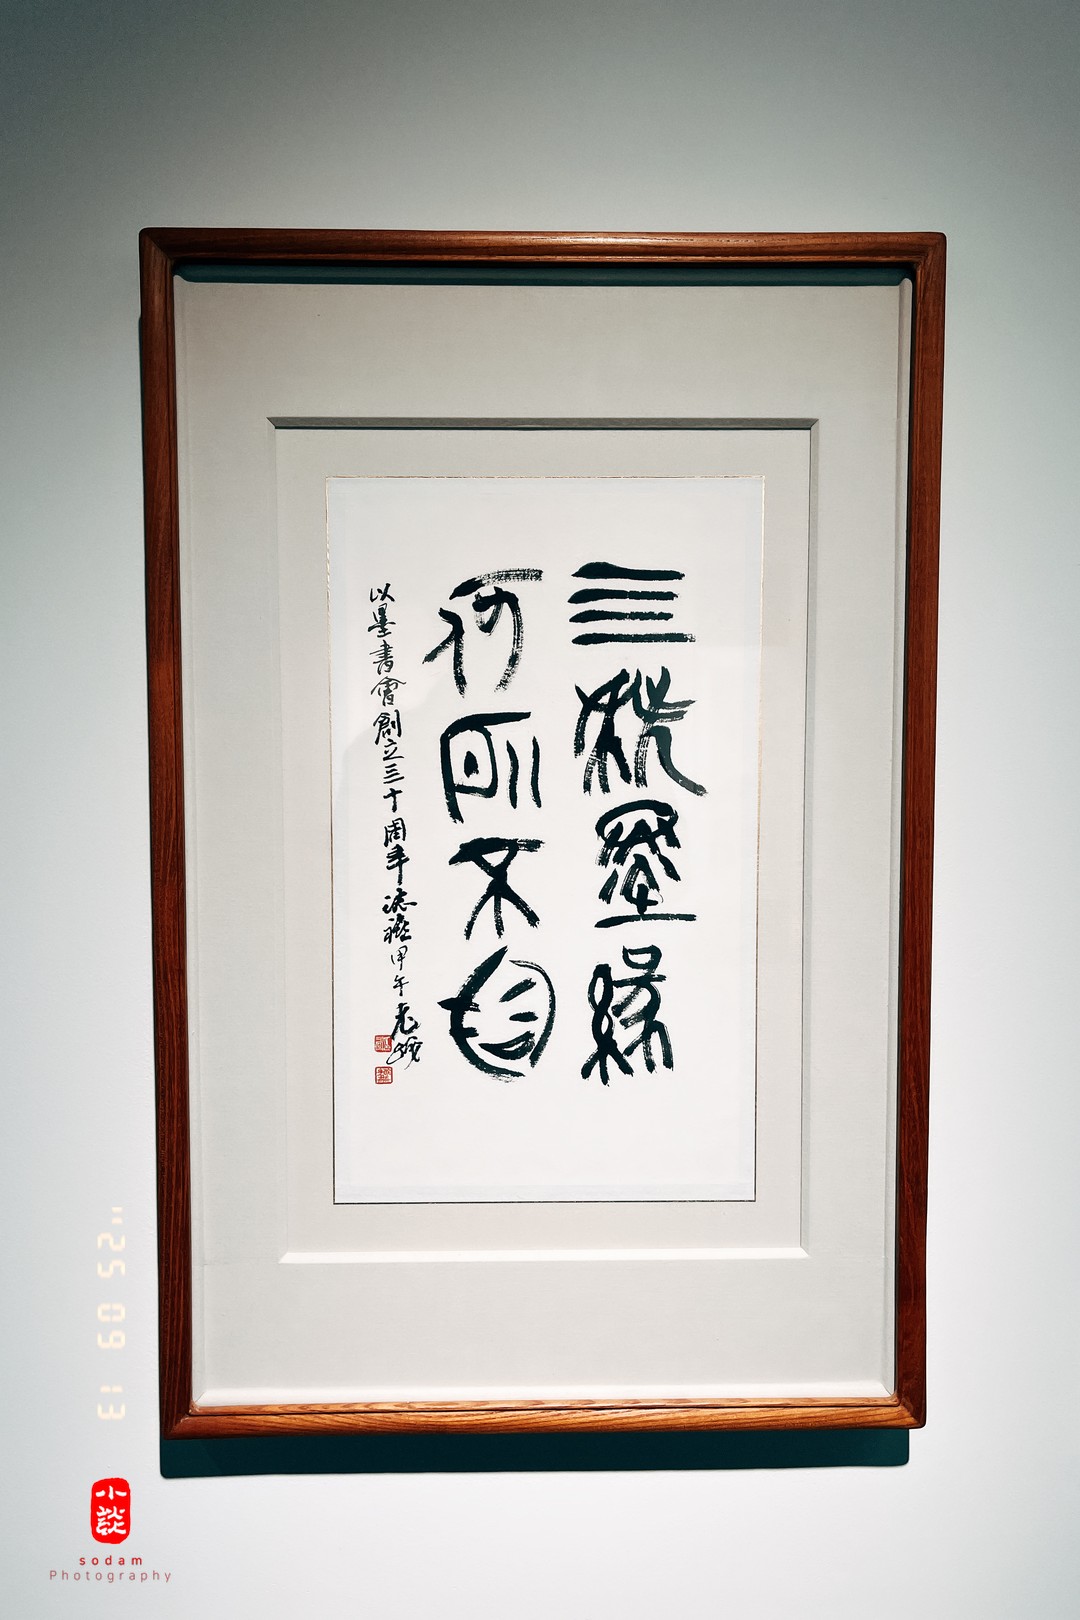 墨緣
何所不
以墨書會創立三十周年誌禧甲午
'25 09 13
小談
sodam
Photography